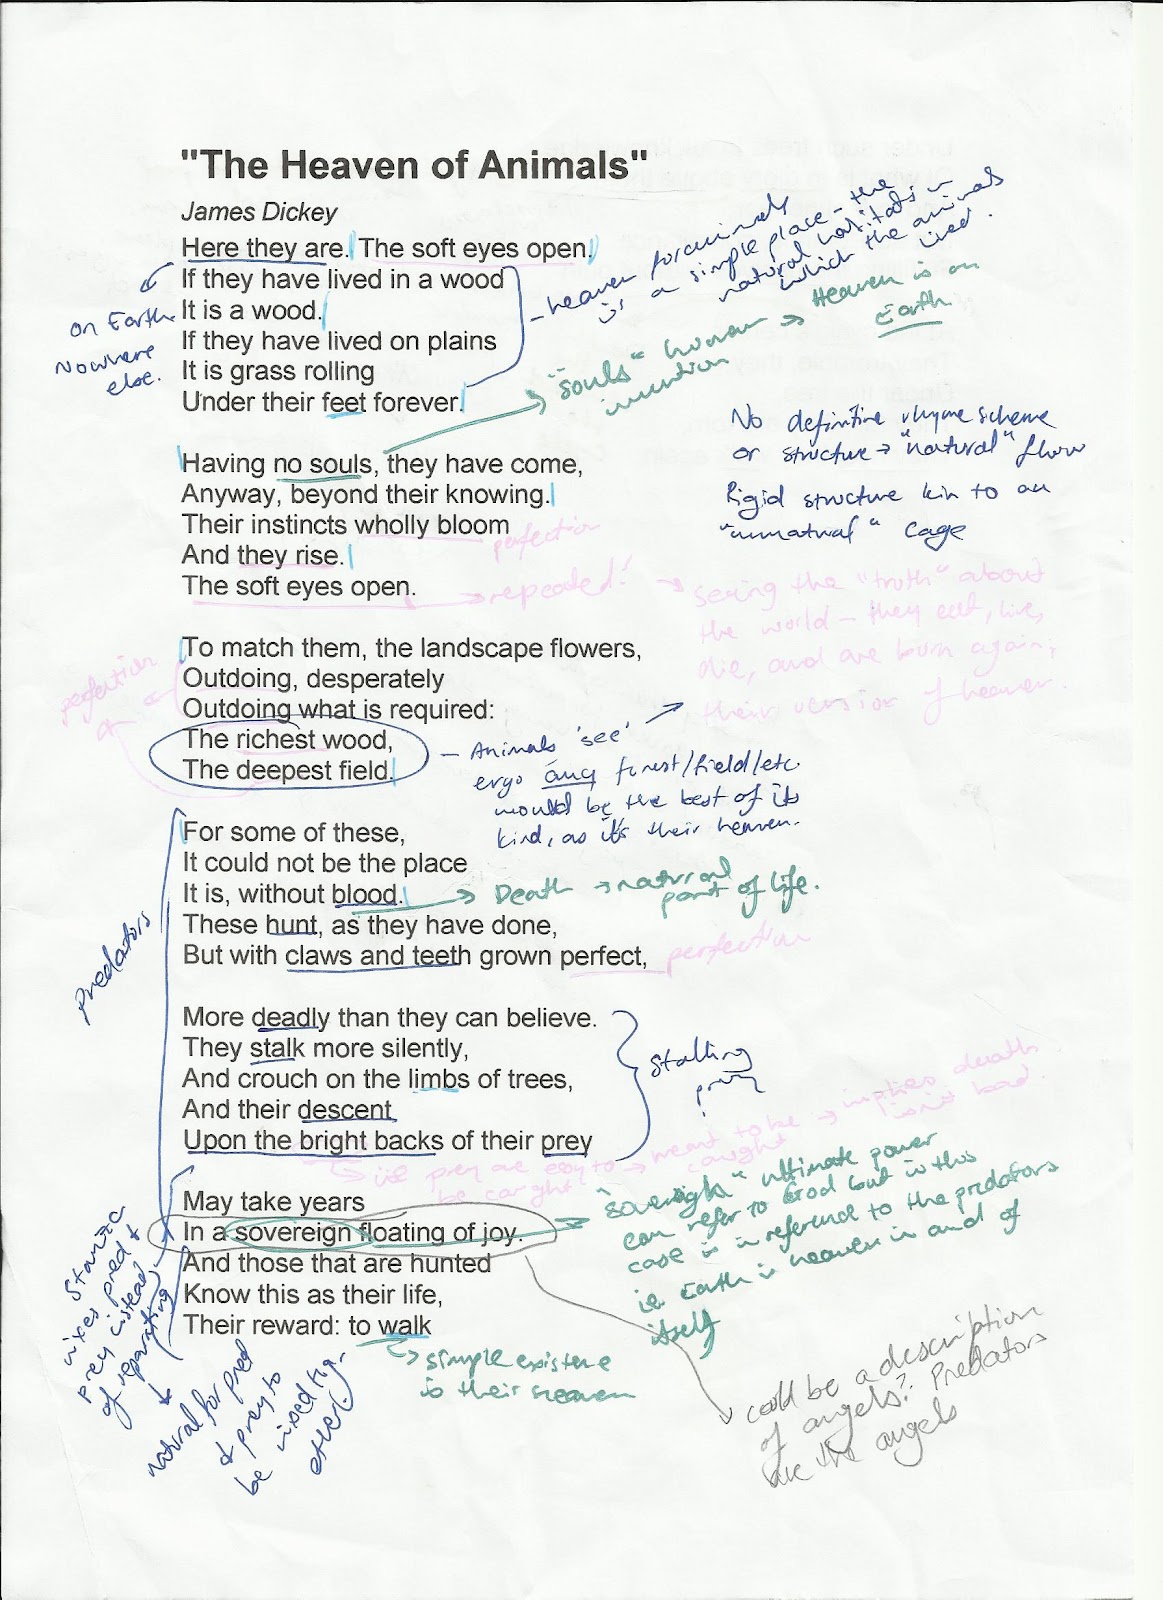 "The Heaven of Animals"
James Dickey
Here they are. The soft eyes open.
If they have lived in a wood
It is a wood.
If they have lived on plains
It is grass rolling
Under their feet forever.
on Earth
Nowhere
else.
- heaven for animals
is a simple place - the
natural habitats in
which the animals
lived.
"souls" human
invention
→ Heaven is on
Earth
No definitive rhyme scheme
or structure → "natural" flow
Rigid structure kin to an
"unnatural" cage
Having no souls, they have come,
Anyway, beyond their knowing.
Their instincts wholly bloom
And they rise.
The soft eyes open.
perfection
→ repeated!
→ seeing the "truth" about
the world - they eat, live,
die, and are born again;
their version of heaven.
To match them, the landscape flowers,
Outdoing, desperately
Outdoing what is required:
The richest wood,
The deepest field.
perfection
- Animals 'see'
ergo any forest/field/etc
would be the best of its
kind, as it's their heaven.
For some of these,
It could not be the place
It is, without blood.
These hunt, as they have done,
But with claws and teeth grown perfect,
→ Death → natural
part of life.
perfection
Predators
More deadly than they can believe.
They stalk more silently,
And crouch on the limbs of trees,
And their descent
Upon the bright backs of their prey
Stalking
prey
→ prey are easy to
be caught
→ meant to be
caught
→ implies death
isn't bad.
May take years
In a sovereign floating of joy.
And those that are hunted
Know this as their life,
Their reward: to walk
"sovereign" ultimate power
can refer to God but in this
case is in reference to the predators
ie Earth is heaven in and of
itself
→ simple existence
is their heaven
could be a description
of angels? Predators
are the angels
Stanza
mixes pred +
prey instead
of separating
natural for pred
+ prey to
be mixed tog-
ether